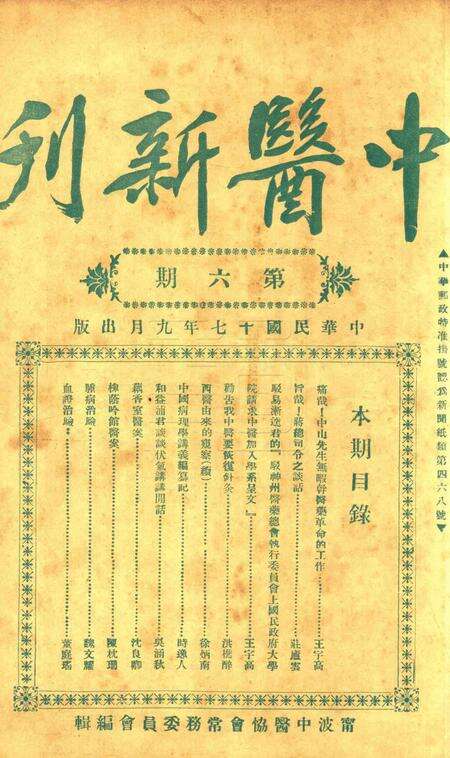 中醫新刊
第六期
中華民國十七年九月出版
▲中華郵政特准掛號認爲新聞紙類第四六八號▼
本期目錄
痛哉!中山先生無暇幹醫藥革命的工作…王宇高
旨哉!蔣總司令之談話…莊虛雲
駁易漸逵君的『駁神州醫藥總會執行委員會上國民政府大學
院請求中醫加入學系呈文』…王宇高
勸告我中醫要恢復針灸…洪樵舲
西醫由來的觀察(續)…徐炳南
中國病理學講義編纂記…時逸人
和蔡浦君談談伏氣講講閒話…吳涵秋
藕香室醫案…沈良卿
檢蔭吟館醫案…陳枕珊
脈病治驗…魏文耀
血證治驗…董庭瑤
甯波中醫協會常務委員會編輯